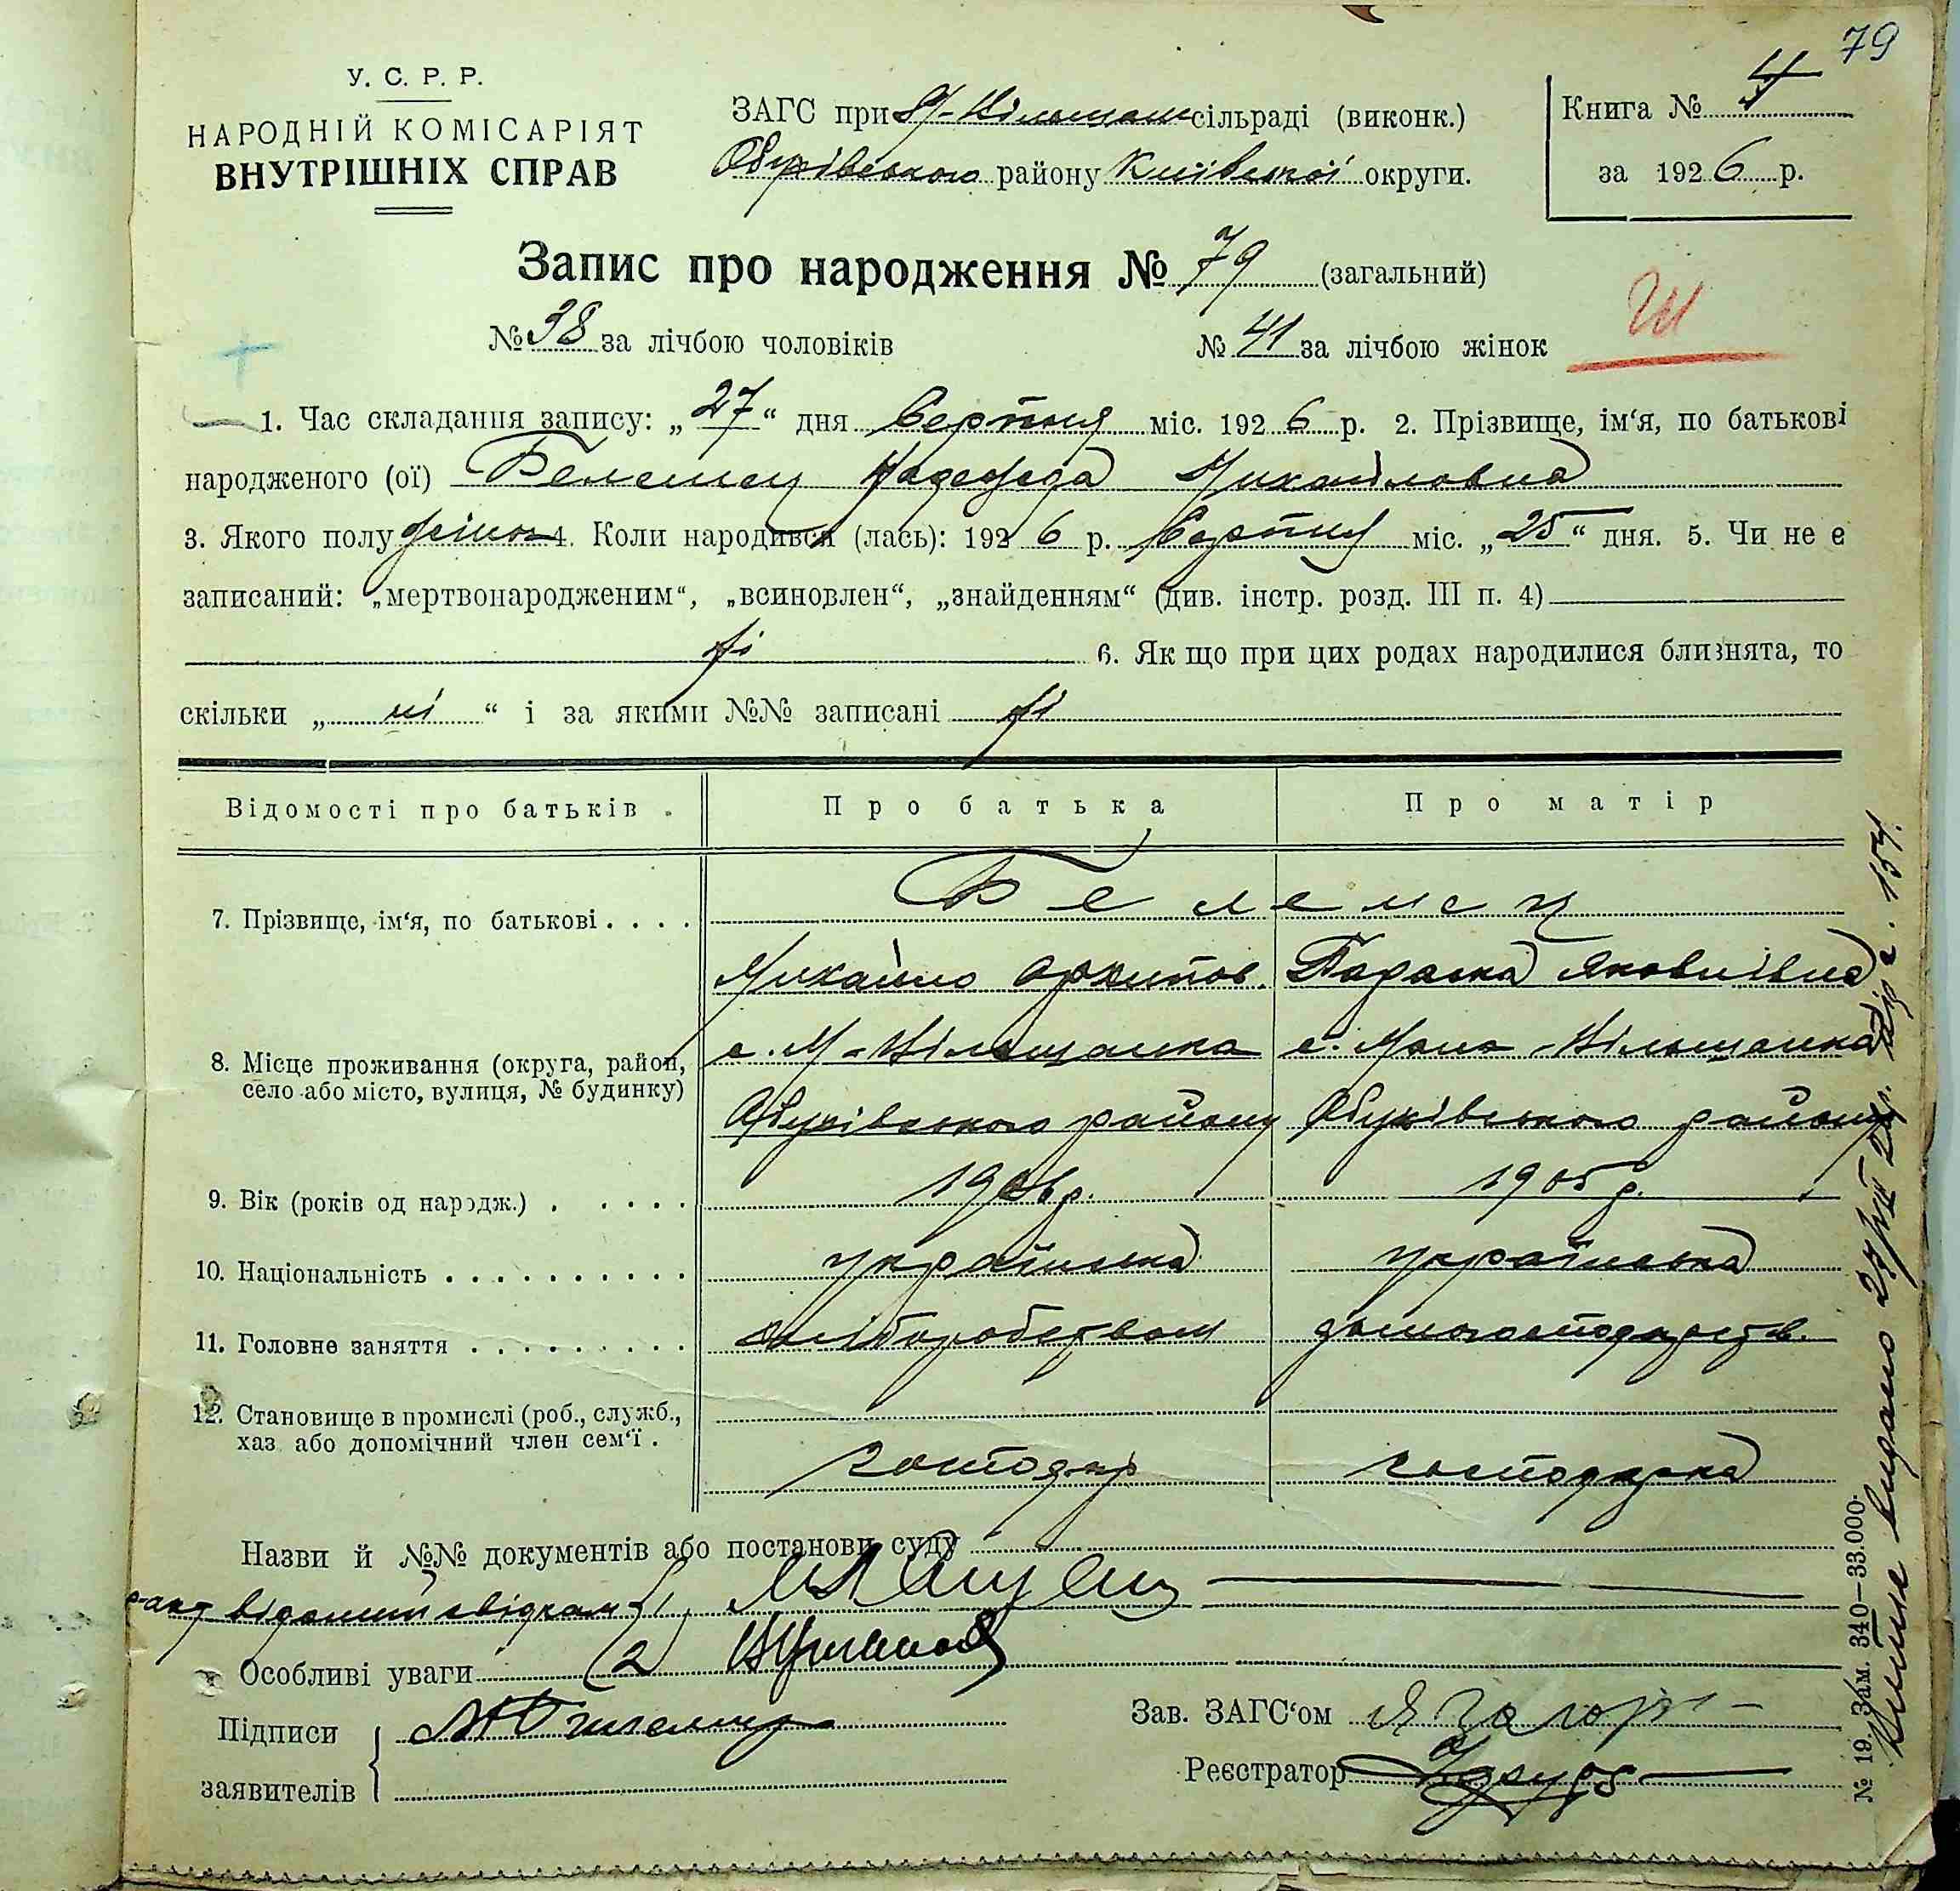 79
У. С. Р. Р.
НАРОДНІЙ КОМІСАРІЯТ
ВНУТРІШНІХ СПРАВ
ЗАГС при М-Вільшан сільраді (виконк.)
Обухівського району Київської округи.
Книга №
за 1926 р.
Запис про народження № 79 (загальний)
№ 38 за лічбою чоловіків № 41 за лічбою жінок
1. Час складання запису: „27“ дня серпня міс. 1926 р. 2. Прізвище, ім‘я, по батькові
народженого (ої) Белемец Надежда Михайловна
3. Якого полу жіноч 4. Коли народився (лась): 1926 р. серпня міс. „25“ дня. 5. Чи не є
записаний: „мертвонародженим“, „всиновлен“, „знайденням“ (див. інстр. розд. III п. 4)
ні 6. Як що при цих родах народилися близнята, то
скільки „ ні “ і за якими №№ записані ні
Відомості про батьків Про батька Про матір
7. Прізвище, ім‘я, по батькові . . . . Белемец
Михайло Архипов. Параска Яковлівна
8. Місце проживання (округа, район, с. М-Вільшанка с. Мало-Вільшанка
село або місто, вулиця, № будинку) Обухівського району Обухівського району
9. Вік (років од народж.) . . . . . 1906 р. 1905 р.
10. Національність . . . . . . . . . . . українська українська
11. Головне заняття . . . . . . . . . хліборобством домогосподарств.
12. Становище в промислі (роб., служб.,
хаз. або допомічний член сем‘ї . господар господарка
Назви й №№ документів або постанови суду
відомий свідкам 1)
Особливі уваги 2)
Підписи
заявителів
Зав. ЗАГС‘ом
Реєстратор
№ 19. Зам. 340—33.000.
видано 27/VIII 26 р. під № 154.